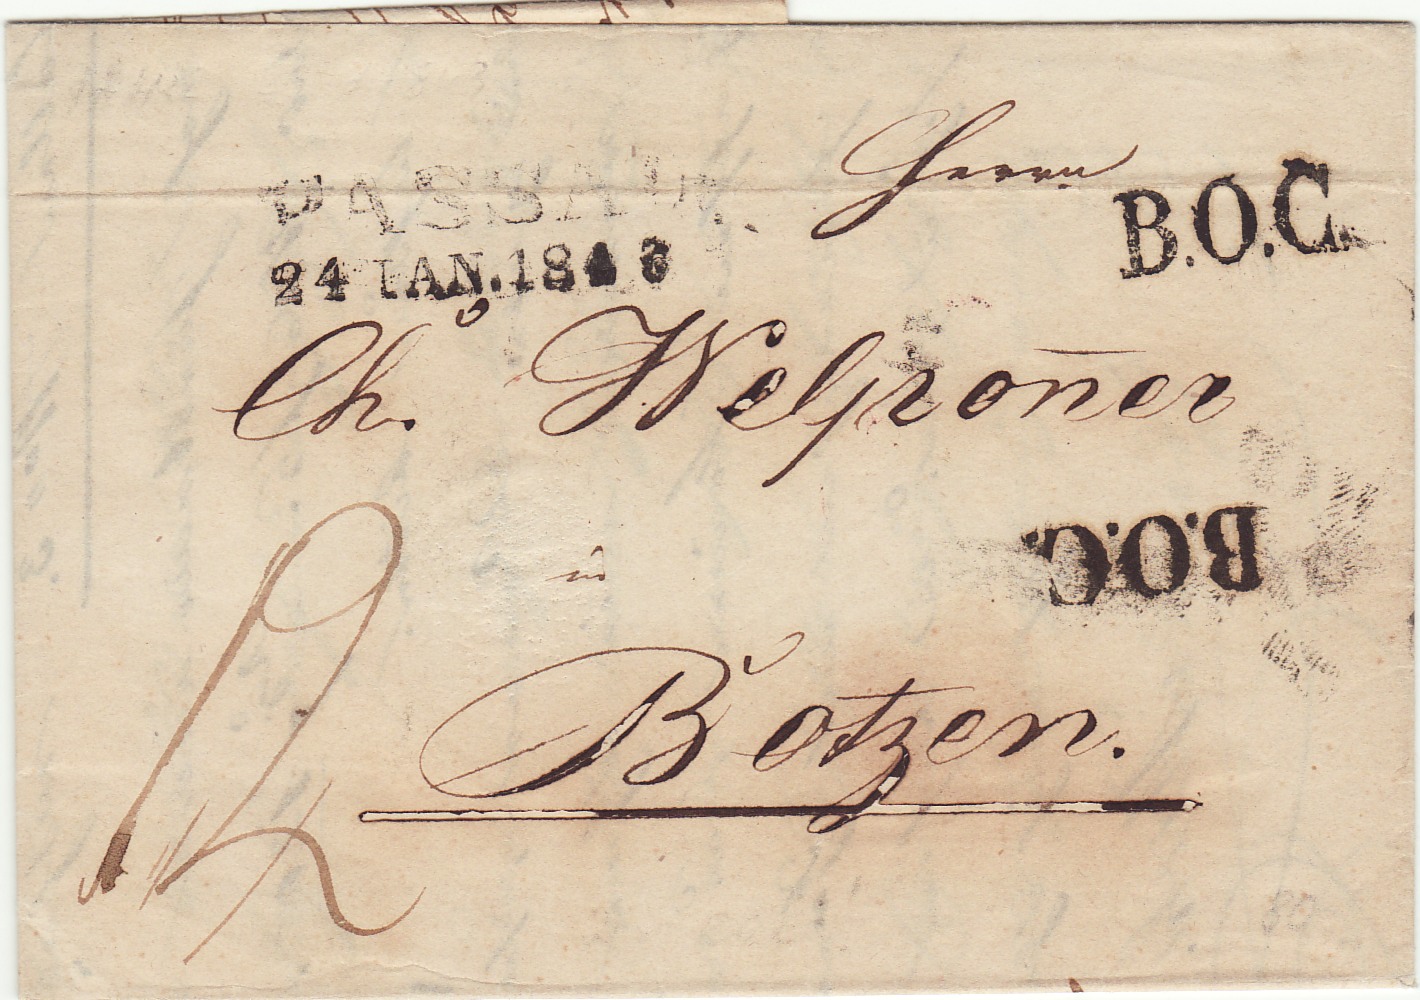 Herrn
PASSAU.
24 IAN. 1843
B.O.C.
Ch. Welponer
B.O.C.
in
Botzen.
12